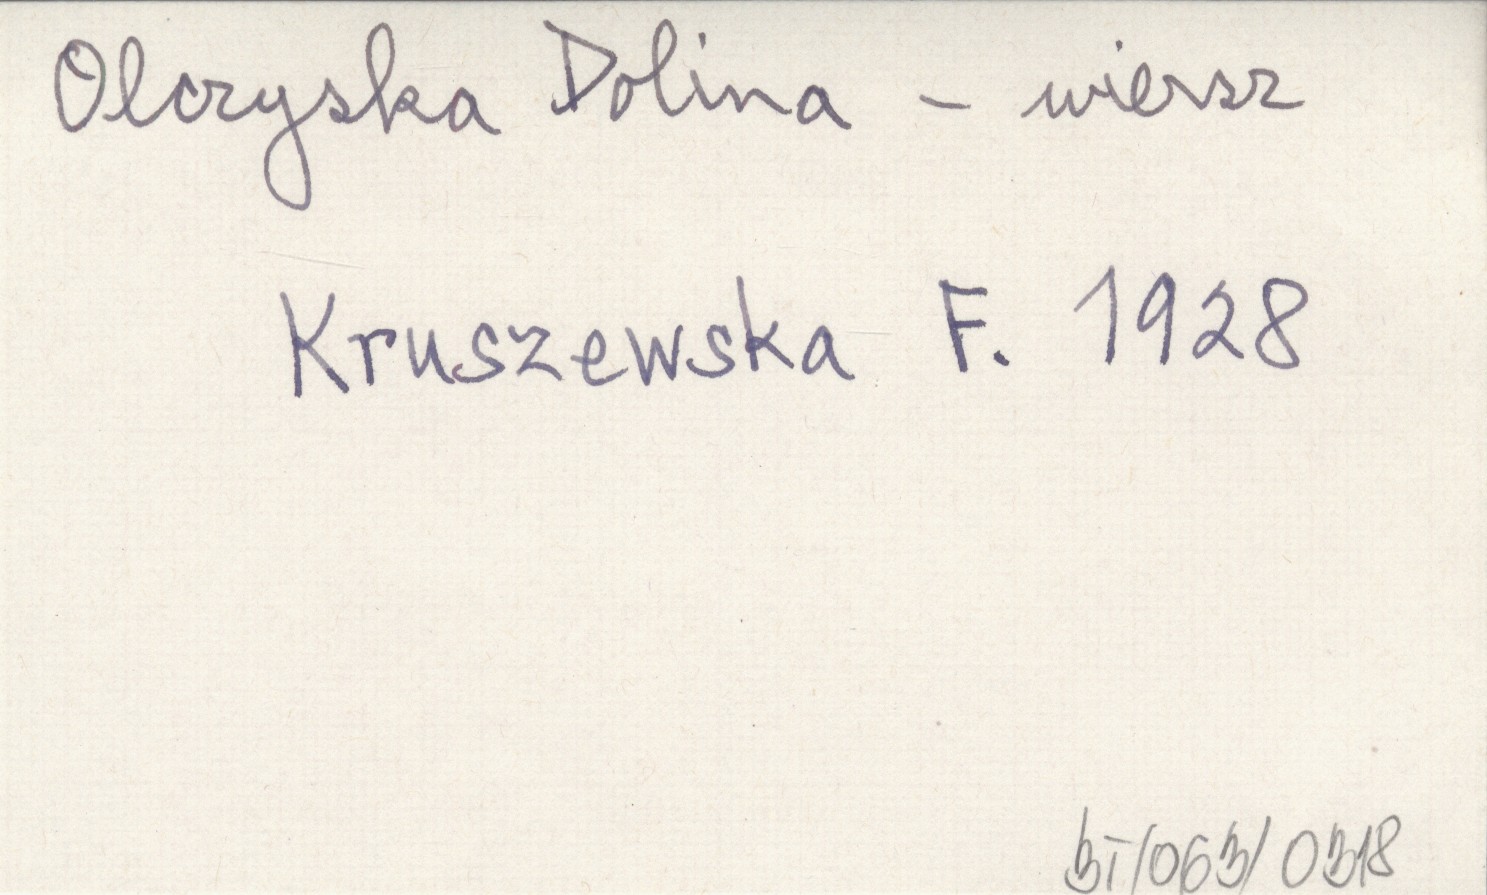 Olczyska Dolina - wiersz
Kruszewska F. 1928
BT/063/0318